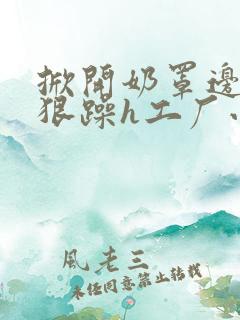 掀開奶罩邊
狠躁h工厂、
風老三
未经同意禁止转载